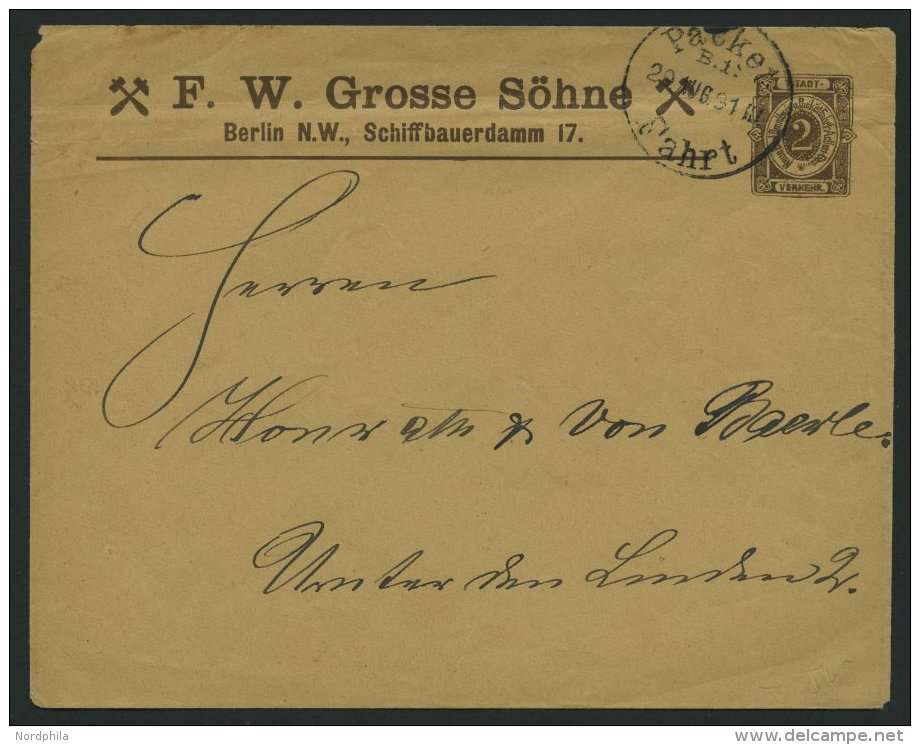 ⚒ F. W. Grosse Söhne ⚒
Berlin N.W., Schiffbauerdamm 17.
Packet
B.1.
29 AUG. 91 N
Fahrt
STADT-
2
VERKEHR.
Herren
Honrath & von Baerle.
Unter den Linden 2.
Nordphila
delcampe.net